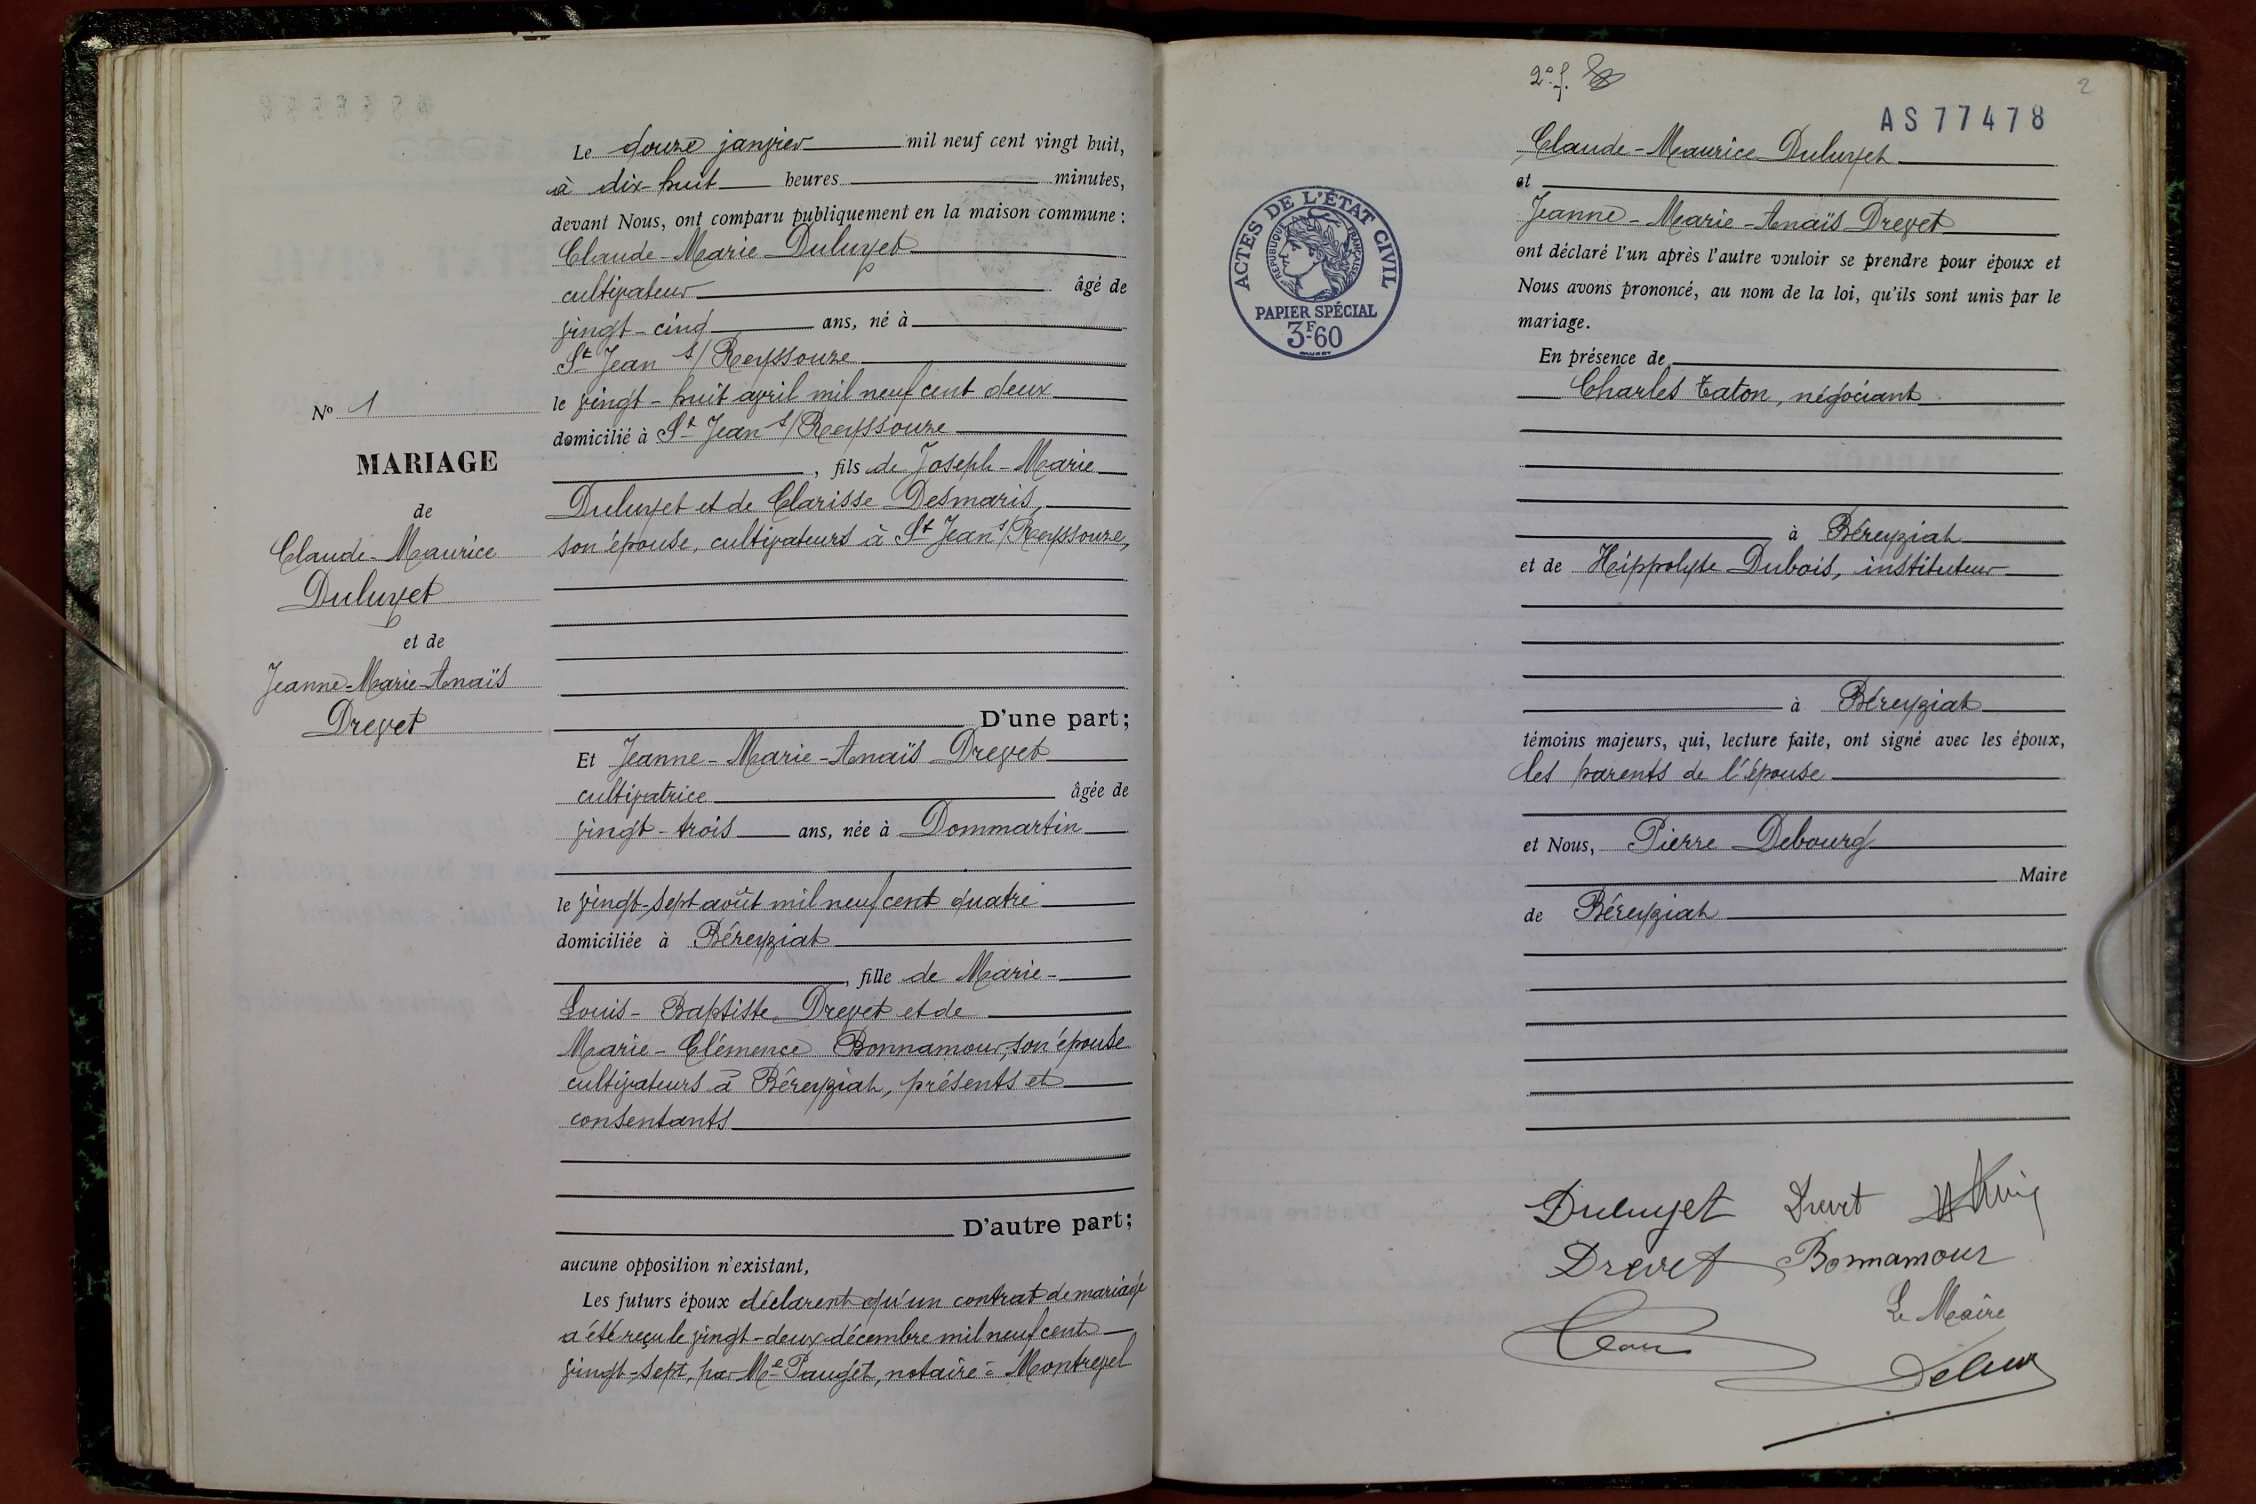 Le douze janvier mil neuf cent vingt huit,
à dix-huit heures minutes,
devant Nous, ont comparu publiquement en la maison commune :
Claude-Marie Duluyet
cultivateur âgé de
vingt-cinq ans, né à
St Jean s/ Reyssouze
le vingt-huit avril mil neuf cent deux
domicilié à St Jean s/ Reyssouze
, fils de Joseph-Marie
Duluyet et de Clarisse Desmaris,
son épouse, cultivateurs à St Jean s/ Reyssouze,
D'une part;
Et Jeanne-Marie-Anaïs Drevet
cultivatrice âgée de
vingt-trois ans, née à Dommartin
le vingt-sept août mil neuf cent quatre
domiciliée à Béreyziat
, fille de Marie-
Louis-Baptiste Drevet et de
Marie-Clémence Bonnamour, son épouse
cultivateurs à Béreyziat, présents et
consentants
D'autre part;
aucune opposition n'existant,
Les futurs époux déclarent qu'un contrat de mariage
a été reçu le vingt-deux décembre mil neuf cent
vingt-sept, par Me Pauget, notaire à Montrevel
No 1
MARIAGE
de
Claude-Maurice
Duluyet
et de
Jeanne-Marie-Anaïs
Drevet
2e f.
2
AS 77478
ACTES DE L'ÉTAT CIVIL
RÉPUBLIQUE FRANÇAISE
PAPIER SPÉCIAL
3F60
Claude-Maurice Duluyet
et
Jeanne-Marie-Anaïs Drevet
ont déclaré l'un après l'autre vouloir se prendre pour époux et
Nous avons prononcé, au nom de la loi, qu'ils sont unis par le
mariage.
En présence de
Charles Taton, négociant
à Béreyziat
et de Hippolyte Dubois, instituteur
à Béreyziat
témoins majeurs, qui, lecture faite, ont signé avec les époux,
les parents de l'épouse
et Nous, Pierre Debourg
Maire
de Béreyziat
Duluyet Drevet
Drevet Bonnamour
Le Maire